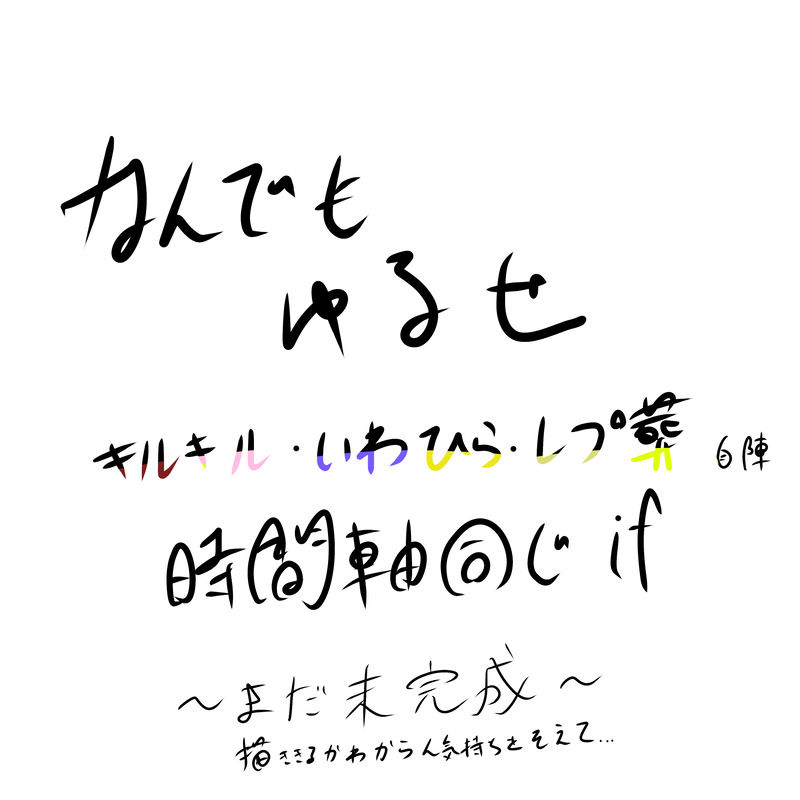 なんでも
ゆるせ
キルキル・いわひら・レプ葬 自陣
時間軸同じ if
～まだ未完成～
描ききるかわからん気持ちをそえて…